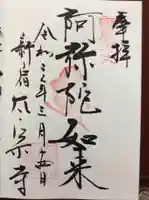 奉拝
阿弥陀如来
令和三年三月十五日
新宿 太宗寺